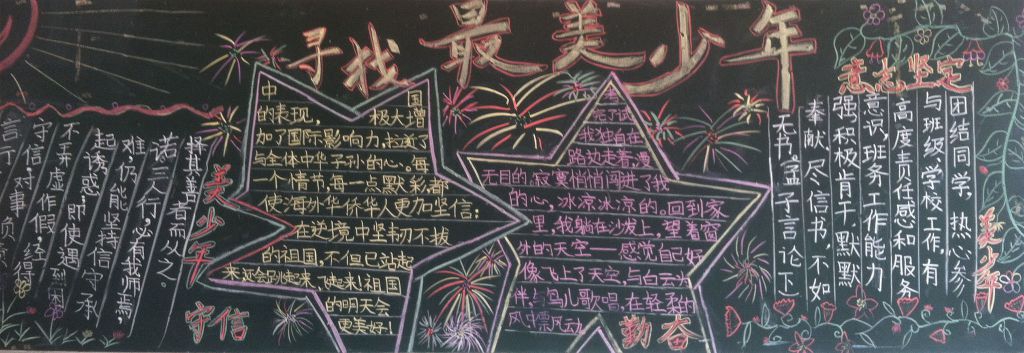 寻找最美少年
意志坚定
团结同学,热心参
与班级,学校工作,有
高度责任感和服务
意识,班务工作能力
强,积极肯干,默默
奉献,尽信书,不如
无书。孟子言论下
美少年
中 国
的表现, 极大增
加了国际影响力,
与全体中华子孙的心。每
一个情节,每一点默彩,都
使海外华侨华人更加坚信:
在逆境中坚韧不拔
的祖国,不但已站起
来 祖国
的明天会
更美好!
我独自在
路边走着,漫
无目的,寂寞悄悄闯进了我
的心,冰凉冰凉的。回到家
里,我躺在沙发上,望着窗
外的天空——感觉自己好
像飞上了天空,与白云
伴,与鸟儿歌唱,在轻柔的
风中飘风动
勤奋
美少年
守信
择其善者而从之。
诺,三人行,必有我师焉,
难,仍能坚持信守承
起诱惑,即使遇
不弄虚作假,经
守信,对
言行 对事负责